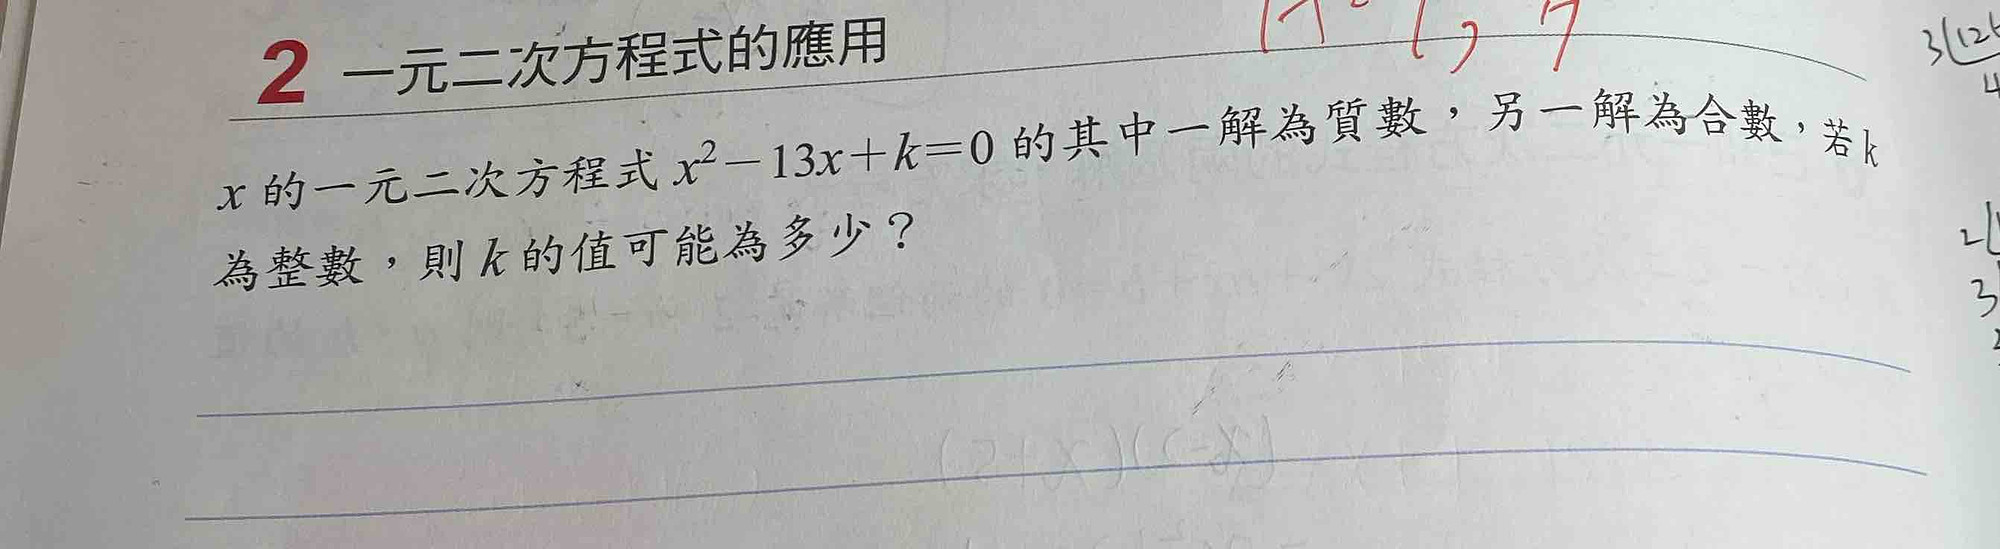 2 一元二次方程式的應用
x 的一元二次方程式 x²－13x＋k＝0 的其中一解為質數，另一解為合數，若k
為整數，則 k 的值可能為多少？